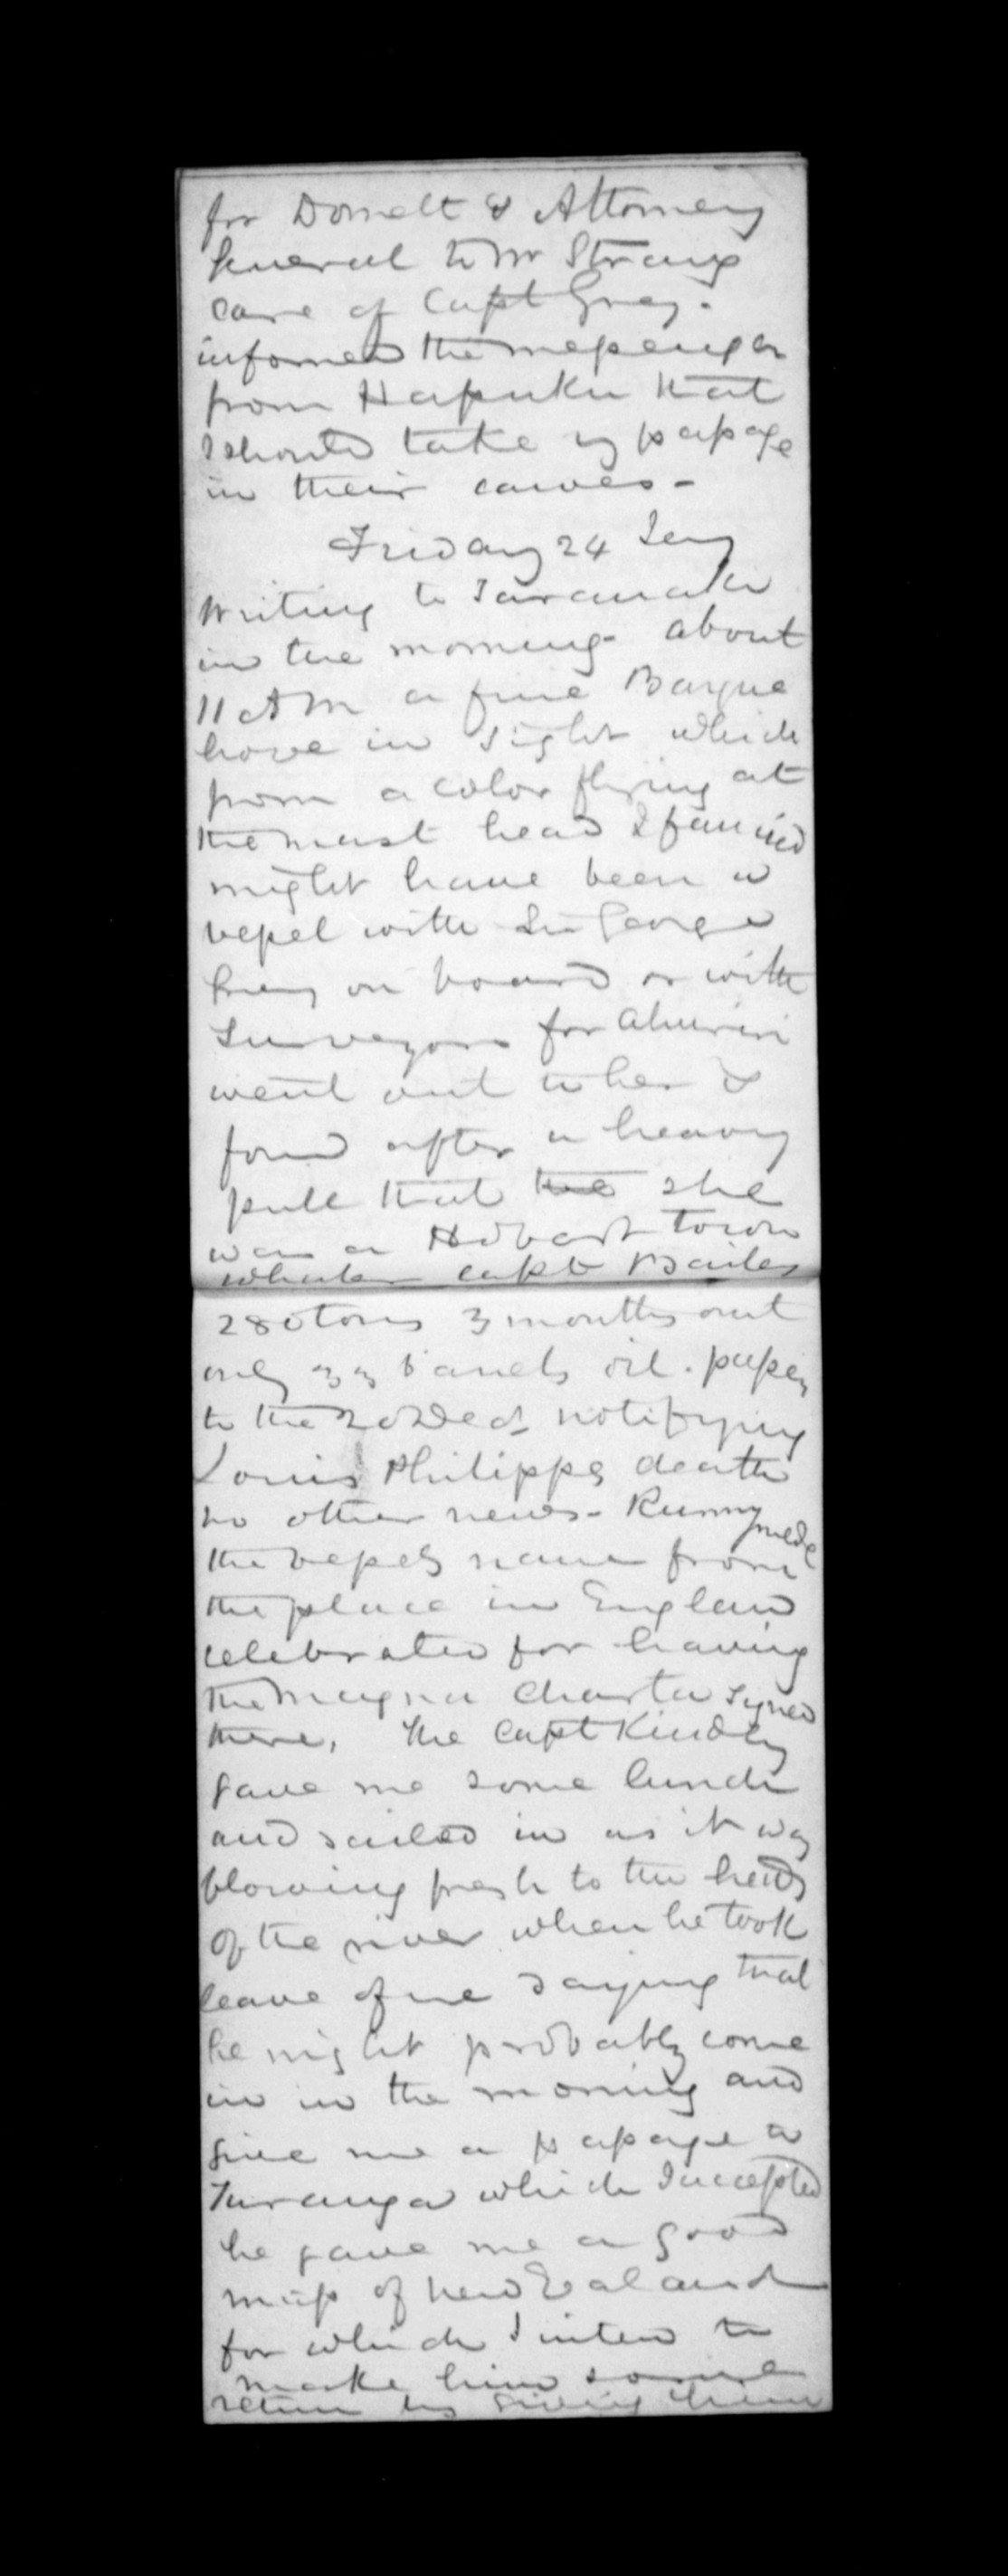 for Domett & Attorney
General to Mr Strang
care of Capt Grey.
informed the messenger
from Hapuku that
I should take my passage
in their canoes -
Friday 24 Jany
Writing to Taranaki
in the morning - about
11 AM a fine Barque
hove in sight which
from a color flying at
the mast head I fancied
might have been a
vessel with Sir George
Grey on board or with
Surveyors for Ahuriri
went out to her &
found after a heavy
pull that she
was a Hobart Town
whaler Capt Bailey
280 tons 3 months out
only 33 barrels oil. papers
to the 20 Decr notifying
Louis Philippes death
no other news - Runnymede
the vessels name from
the place in England
celebrated for having
the Magna Charta signed
there, The Capt Kindly
gave me some lunch
and sailed in as it was
blowing fresh to the heads
of the river when he took
leave of me saying that
he might probably come
in in the morning and
give me a passage to
Turanga which I accepted
he gave me a good
map of New Zealand
for which I inten to
make him some
return by giving them